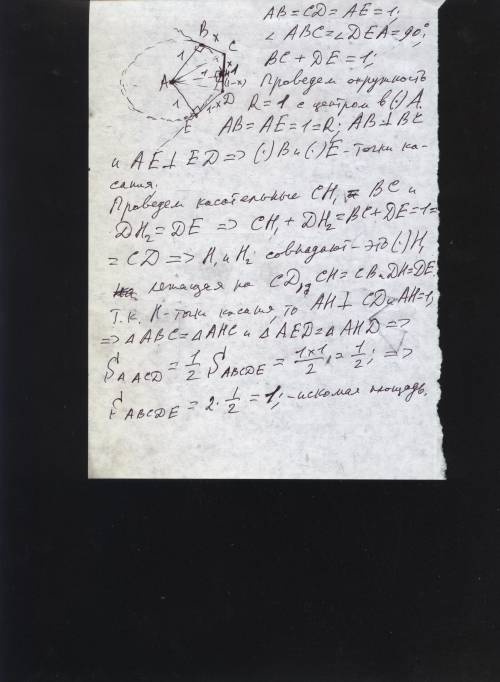 AB = CD = AE = 1;
∠ABC = ∠DEA = 90°;
BC + DE = 1;
Проведем окружность
R = 1 с центром в (·) A.
AB = AE = 1 = R; AB ⊥ BC
и AE ⊥ ED => (·) B и (·) E - точки ка-
сания.
Проведем касательные CH₁ = BC и
DH₂ = DE => CH₁ + DH₂ = BC + DE = 1 =
= CD => H₁ и H₂ совпадают - это (·) H,
лежащая на CD, CH = CB и DH = DE.
Т.к. H - точка касания, то AH ⊥ CD и AH = 1;
=> △ABC = △AHC и △AED = △AHD =>
S△ACD = 1/2 S ABCDE = 1×1/2 = 1/2; =>
S ABCDE = 2 · 1/2 = 1; - искомая площадь.
B x
C
1
x
A
1
1
(1-x)
1
D
E
1-x